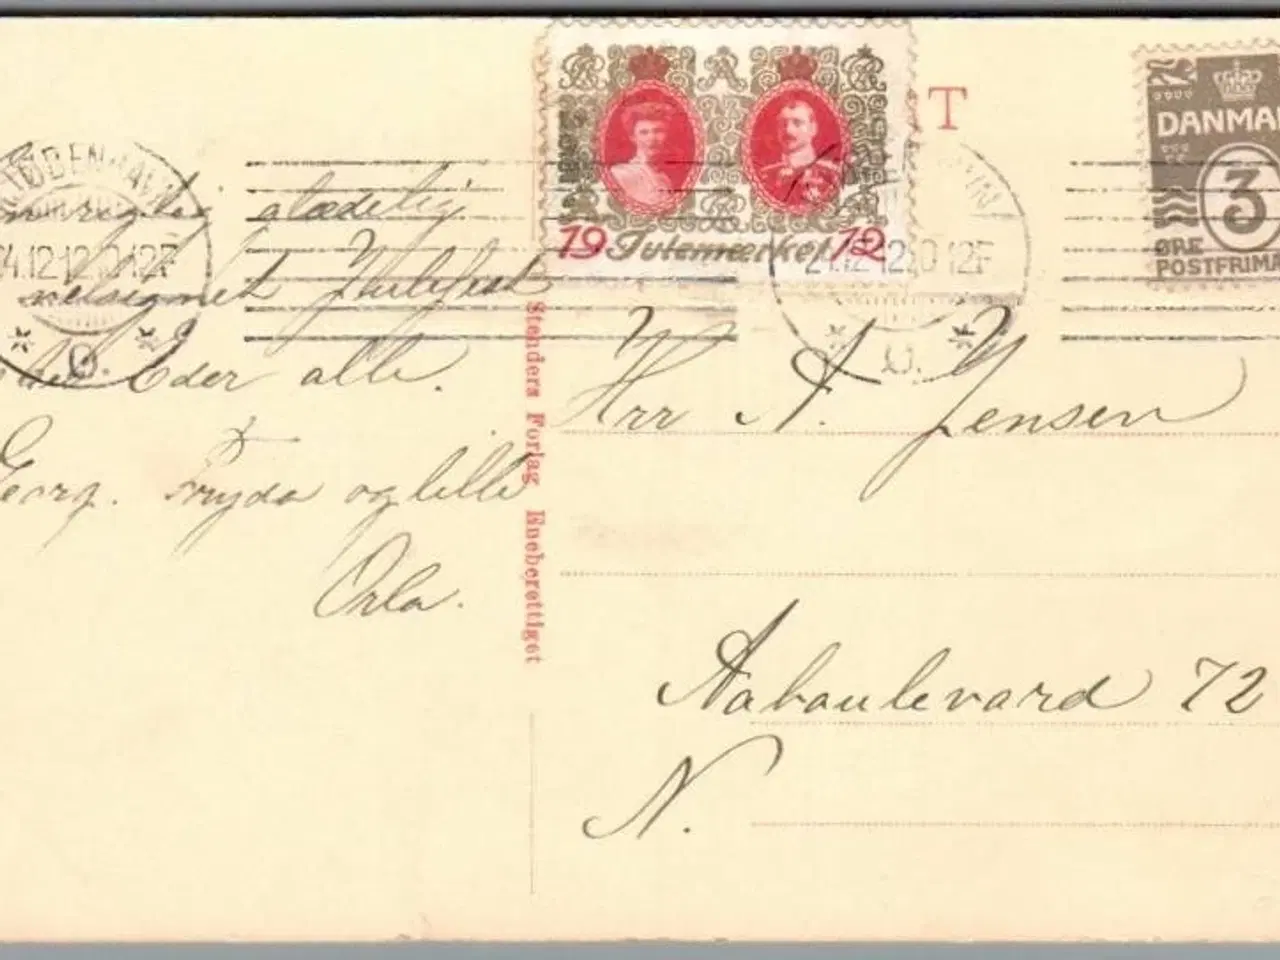 T
DANMA
3
ØRE
POSTFRIMÆ
19 Julemærket 12
KJØBENHAVN
24.12.12.10-12F
Ø.
24.12.12.10-12F
Ø.
glædelig
velsignet Julefest
Eder alle.
Georg. Fryda og lille
Orla.
Stenders Forlag Eneberettiget
Hrr A. Jensen
Aaboulevard 72
N.